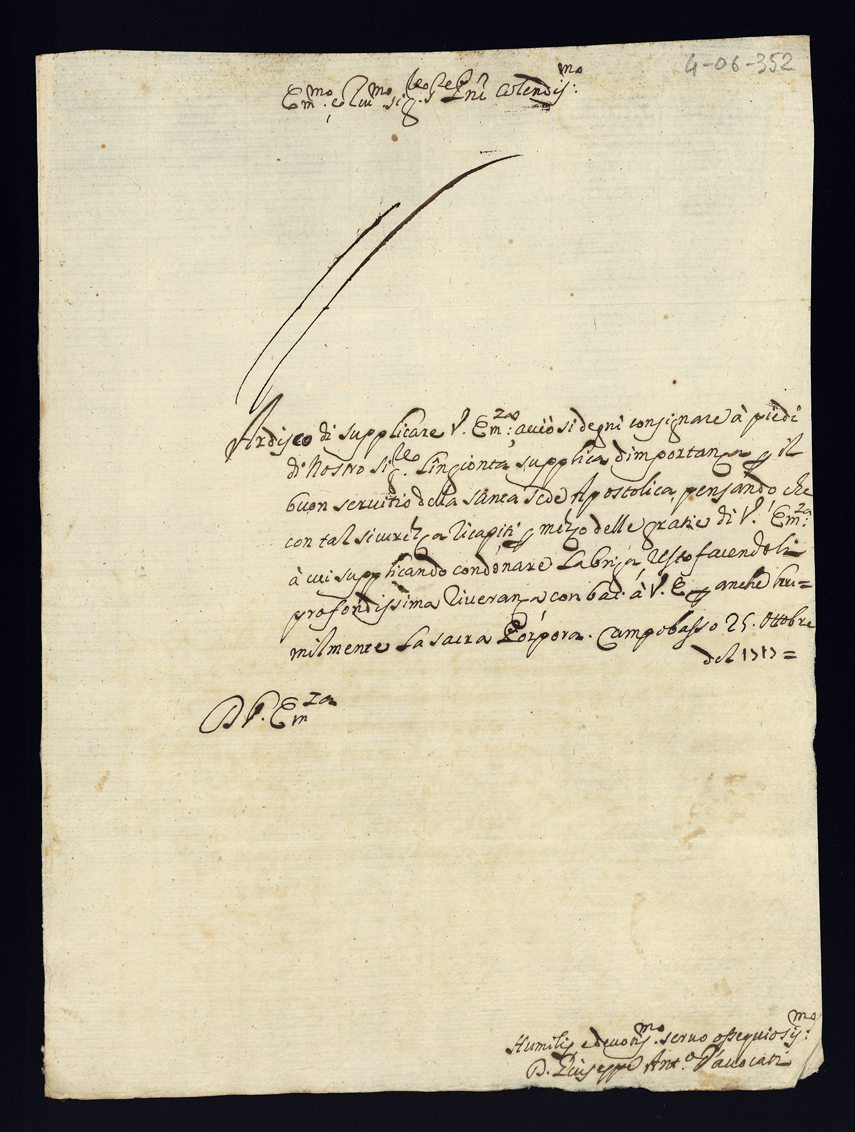 4-06-352
Em.mo e Rm.mo Sig.re Pñi Colendis.mo:
Ardisco di supplicare V. Em.za: acciò si degni consignare à piedi
di Nostro Sig.re l'ingionta supplica d'importanza p il
buon servitio della Santa Sede Apostolica, pensando che
con tal sicurezza ricapiti p mezzo delle gratie di V. Em.za:
à cui supplicando condonare la briga, resto facendoli
profondissima riveranza con bac. à V. E. p anche hu=
milmente la sacra Porpora. Campobasso 25. Ottobre
del 1717=
D V. Em.za
Humilis. e devotis.mo servo ossequiosis.mo:
D. Giuseppe Ant.o